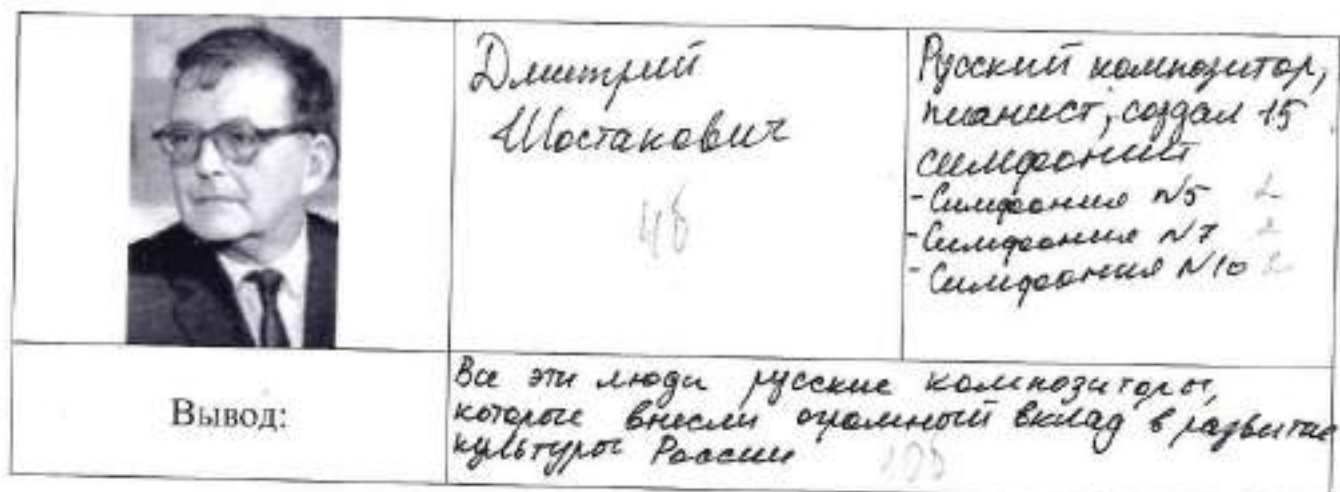 Дмитрий
Шостакович
4б
Русский композитор,
пианист, создал 15
симфоний
- Симфония №5 2
- Симфония №7 2
- Симфония №10 2
Вывод:
Все эти люди русские композиторы,
которые внесли огромный вклад в развитие
культуры России